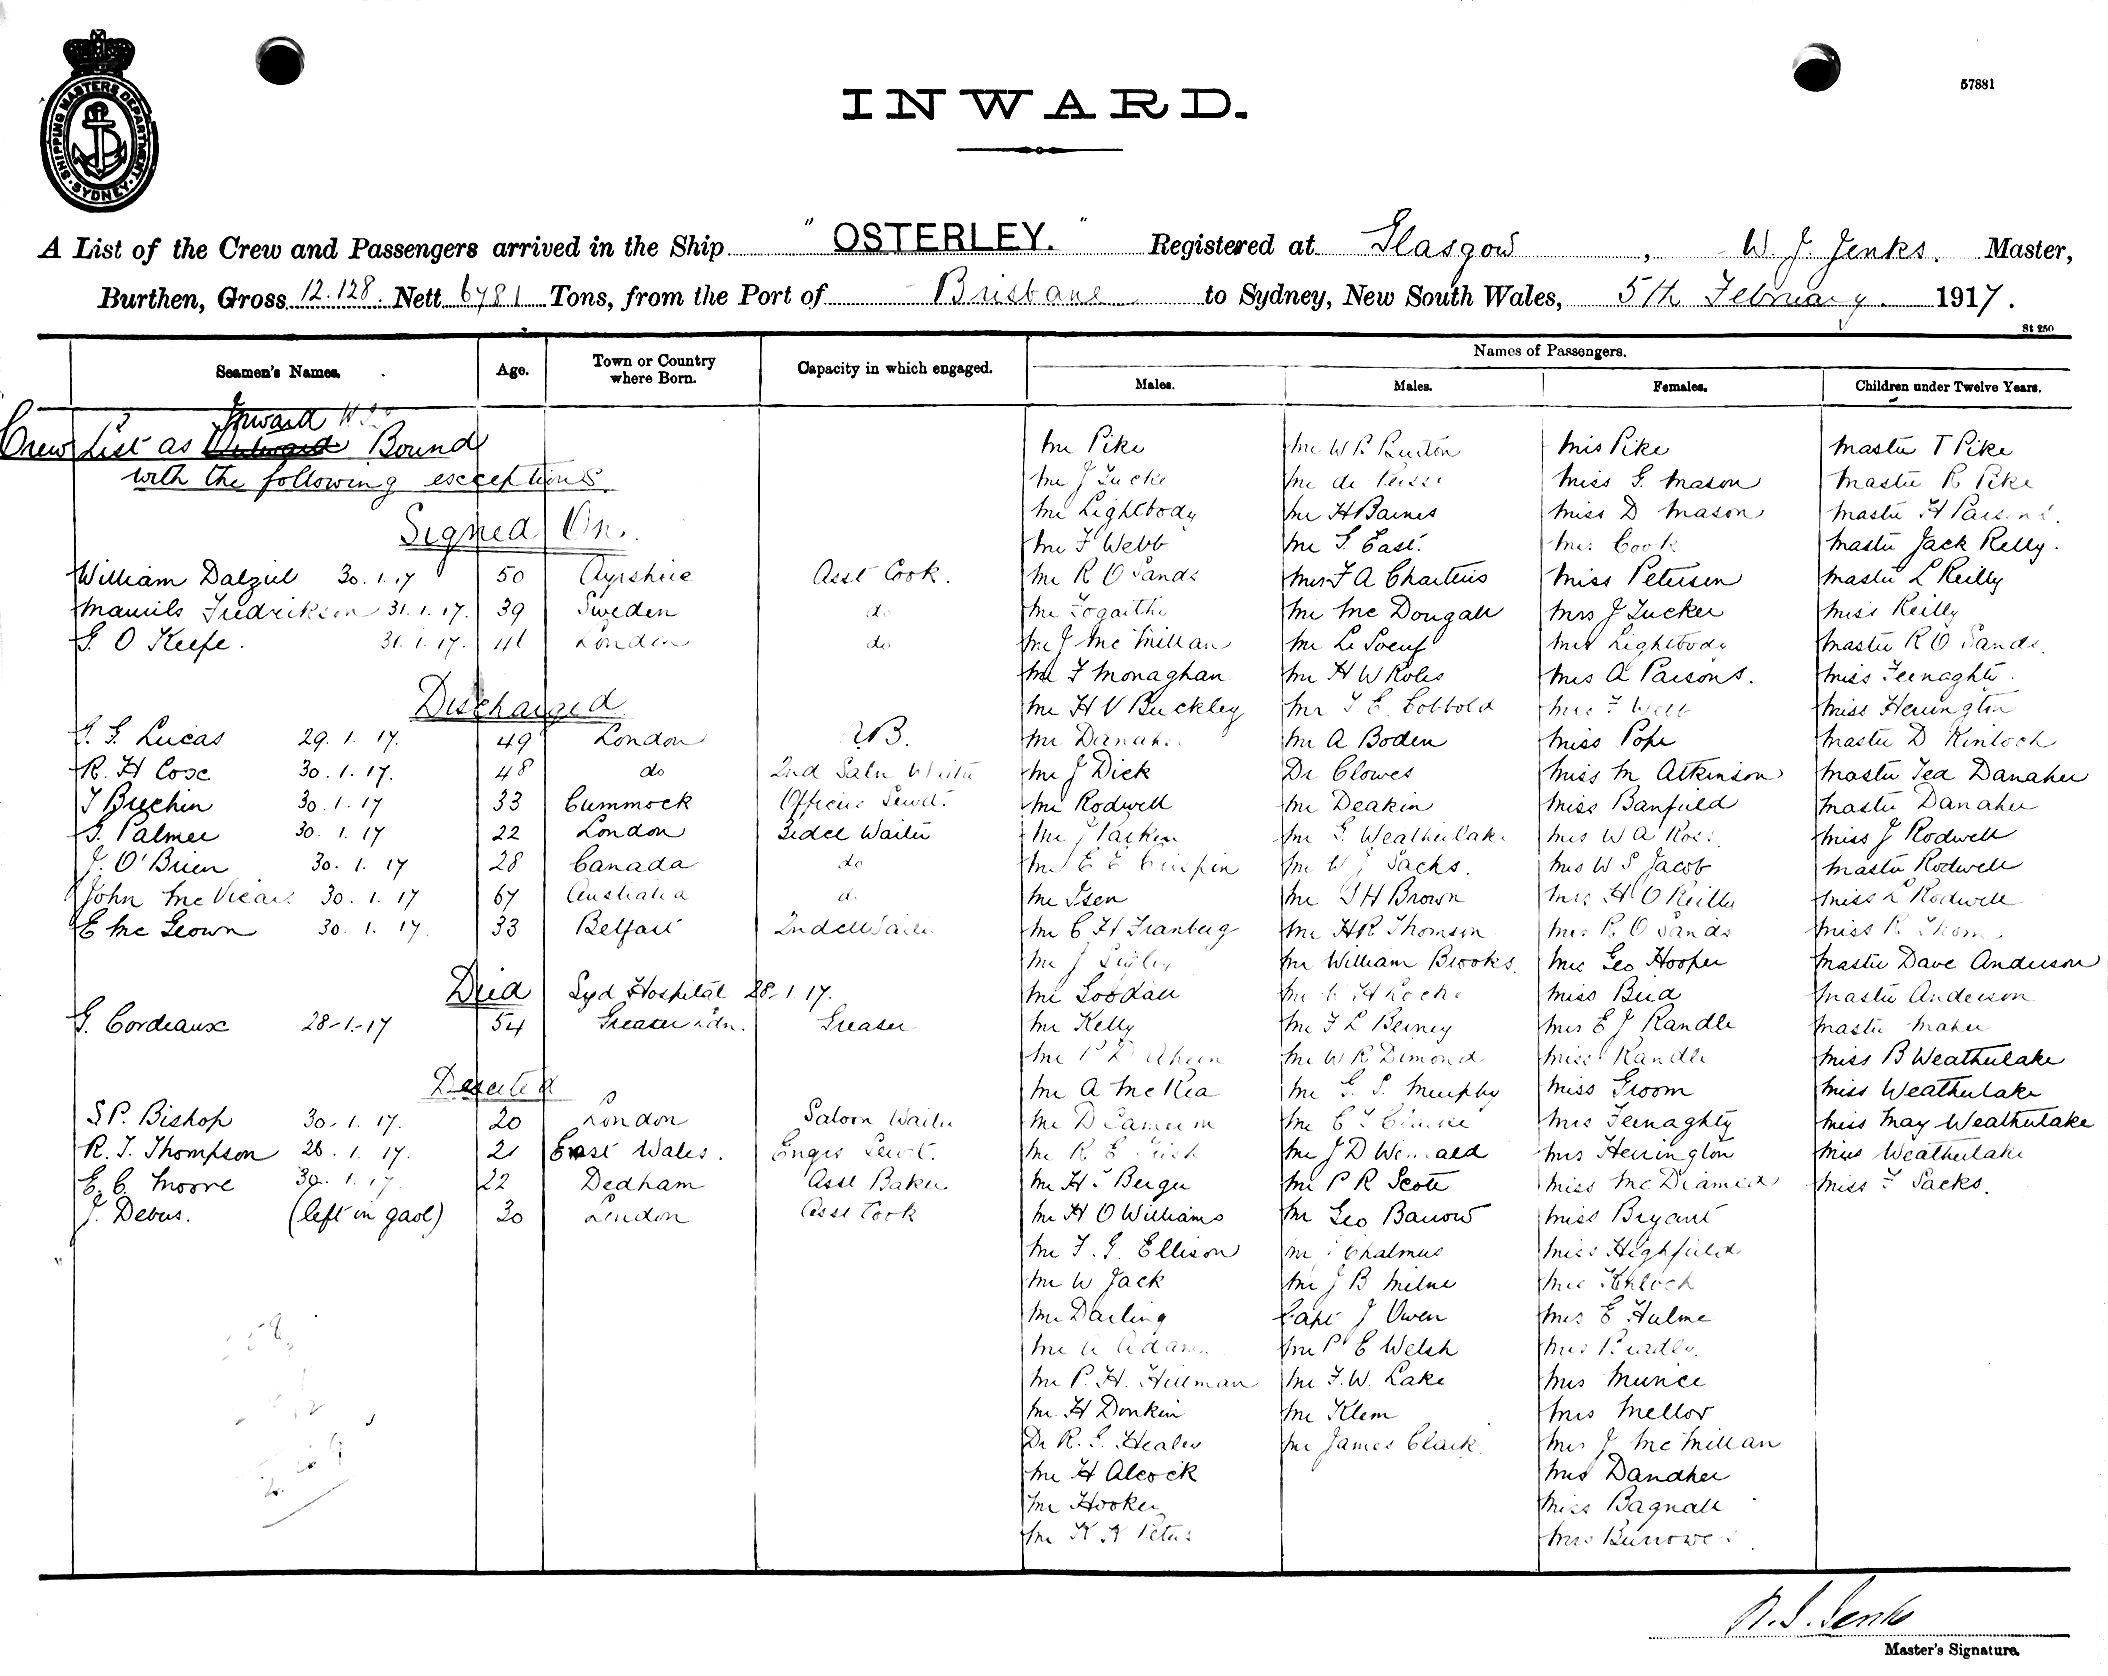 SHIPPING MASTERS DEPARTMENT · SYDNEY ·
57881
INWARD.
A List of the Crew and Passengers arrived in the Ship " OSTERLEY. " Registered at Glasgow, W. J. Jenks. Master,
Burthen, Gross 12.128. Nett 6781 Tons, from the Port of Brisbane to Sydney, New South Wales, 5th February. 1917.
St 250
Seamen's Names. Age. Town or Country where Born. Capacity in which engaged. Names of Passengers.
Males. Males. Females. Children under Twelve Years.
Inward
Crew List as Outward Bound
with the following exceptions.
Signed On.
William Dalziel 30.1.17 50 Ayrshire Asst Cook.
Fredriksen 31.1.17. 39 Sweden do
G. O Keefe. 31.1.17. London do
Discharged
G. Lucas 29.1.17. 49 London
R. H Coxe 30.1.17. 48 do 2nd Saln Waiter
J Brechin 30.1.17 33 Cummock Officers Sewd.
G. Palmer 30.1.17 22 London Waiter
J. O'Brien 30.1.17 28 Canada do
John McVicar 30.1.17 67 Australia
E McGeown 30.1.17. 33 Belfast Waiter
Died Syd Hospital 28-1-17.
G. Cordeaux 28-1-17 54 Greaser
Deserted
S P. Bishop 30.1.17. 20 London Saloon Waiter
R. J. Thompson 1.17. 21 East Wales. Engrs Sewt.
E. C. Moore 30.1.17. 22 Dedham Asst Baker
J. Debus. (left in gaol) 30 London Asst Cook
Mr Pike
Mr J Tucker
Mr Lightbody
Mr F Webb
Mr R O Sands
Mr Fogarthy
Mr J McMillan
Mr F Monaghan
Mr H V Buckley
Mr Danaher
Mr J Dick
Mr Rodwell
Mr J Larkin
Mr E E Crispin
Mr Isen
Mr C H Tranberg
Mr J
Mr Goodall
Mr Kelly
Mr P D Ahern
Mr A McKia
Mr D Cameron
Mr R E
Mr H. Berger
Mr H O Williams
Mr F. G. Ellison
Mr W Jack
Mr Darling
Mr A Adam
Mr P. H. Hillman
Mr H Donkin
Dr R. G. Healey
Mr H Alcock
Mr Hooker
Mr K K Peters
Mr W P Buxton
Mr de
Mr H Barnes
Mr G. East.
Mr F A Charteris
Mr McDougall
Mr Le Soeuf
Mr H W Roles
Mr T E Cobbold
Mr A Boden
Dr Clowes
Mr Deakin
Mr G. Weatherlake
Mr W J Sacks.
Mr T H Brown
Mr HR Thomson
Mr William Brooks.
Mr H Roche
Mr F L Berney
Mr W R Dimond
Mr G. S. Murphy
Mr C
Mr J D
Mr P R Scott
Mr Geo Barrow
Mr Chalmers
Mr J B Milne
Capt J Owen
Mr P E Welsh
Mr F. W. Lake
Mr Klem
Mr James Clark
Mrs Pike
Miss G. Mason
Miss D Mason
Mrs Cook
Miss Petersen
Mrs J Tucker
Mrs Lightbody
Mrs A Parsons.
Mrs F Webb
Miss Pope
Miss M Atkinson
Miss Banfield
Mrs W A Ross
Mrs W S Jacob
Mrs H O Reilly
Mrs R O Sands
Mrs Geo Hooper
Miss Bird
Mrs E J Randle
Miss Randle
Miss Groom
Mrs Feenaghty
Mrs Herrington
Miss McDiarmid
Miss Bryant
Miss Highfield
Mrs Kinloch
Mrs E Hulme
Mrs
Mrs Munce
Mrs Mellor
Mrs J McMillan
Mrs Danaher
Miss Bagnall
Mrs Burrowes
Master T Pike
Master R Pike
Master H Parsons.
Master Jack Kelly.
Master L Reilly
Miss Reilly
Master R O Sands.
Miss Feenaghty.
Miss Herrington
Master D Kinloch
Master Ted Danaher
Master Danaher
Miss J Rodwell
Master Rodwell
Miss L Rodwell
Miss R Thom
Master Dave Anderson
Master Anderson
Master Maher
Miss B Weatherlake
Miss Weatherlake
Miss May Weatherlake
Miss Weatherlake
Miss F Sacks.
W. J. Jenks
Master's Signature.